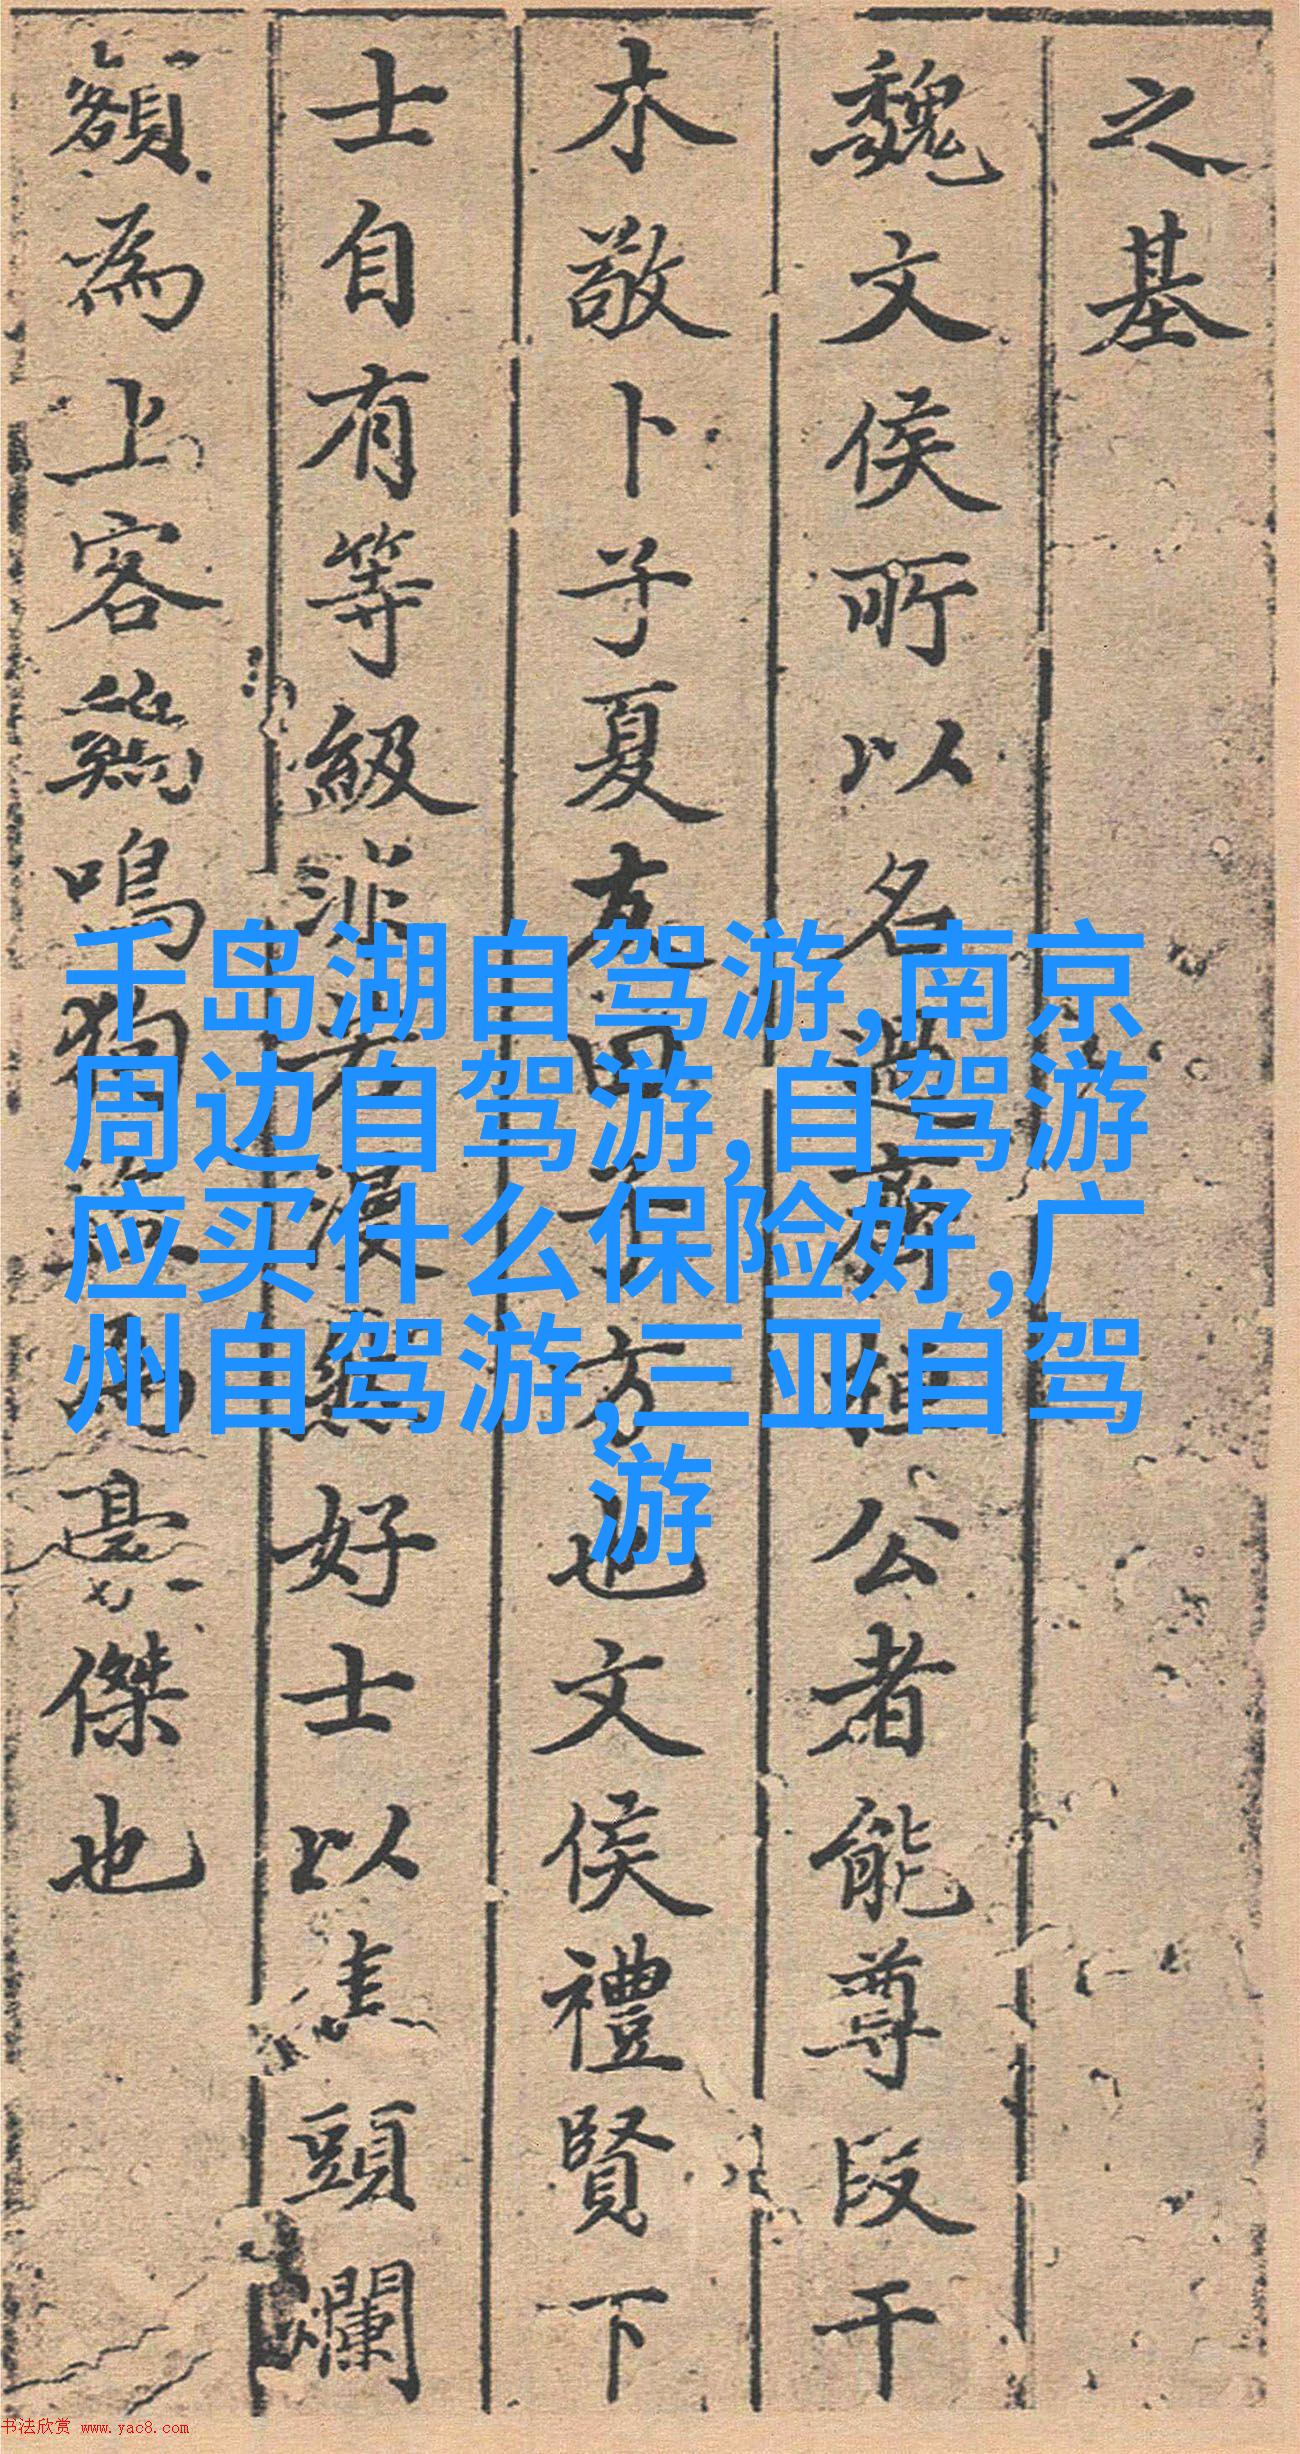 之基
魏文侯所以名過齊桓公者能尊段干
木敬卜子夏友田子方也文侯禮賢下
士自有等級非若後世好士以焦頭爛
額為上客雞鳴狗盜為豪傑也
千岛湖自驾游,南京
周边自驾游,自驾游
应买什么保险好,广
州自驾游,三亚自驾
游
书法欣赏 www.yac8.com